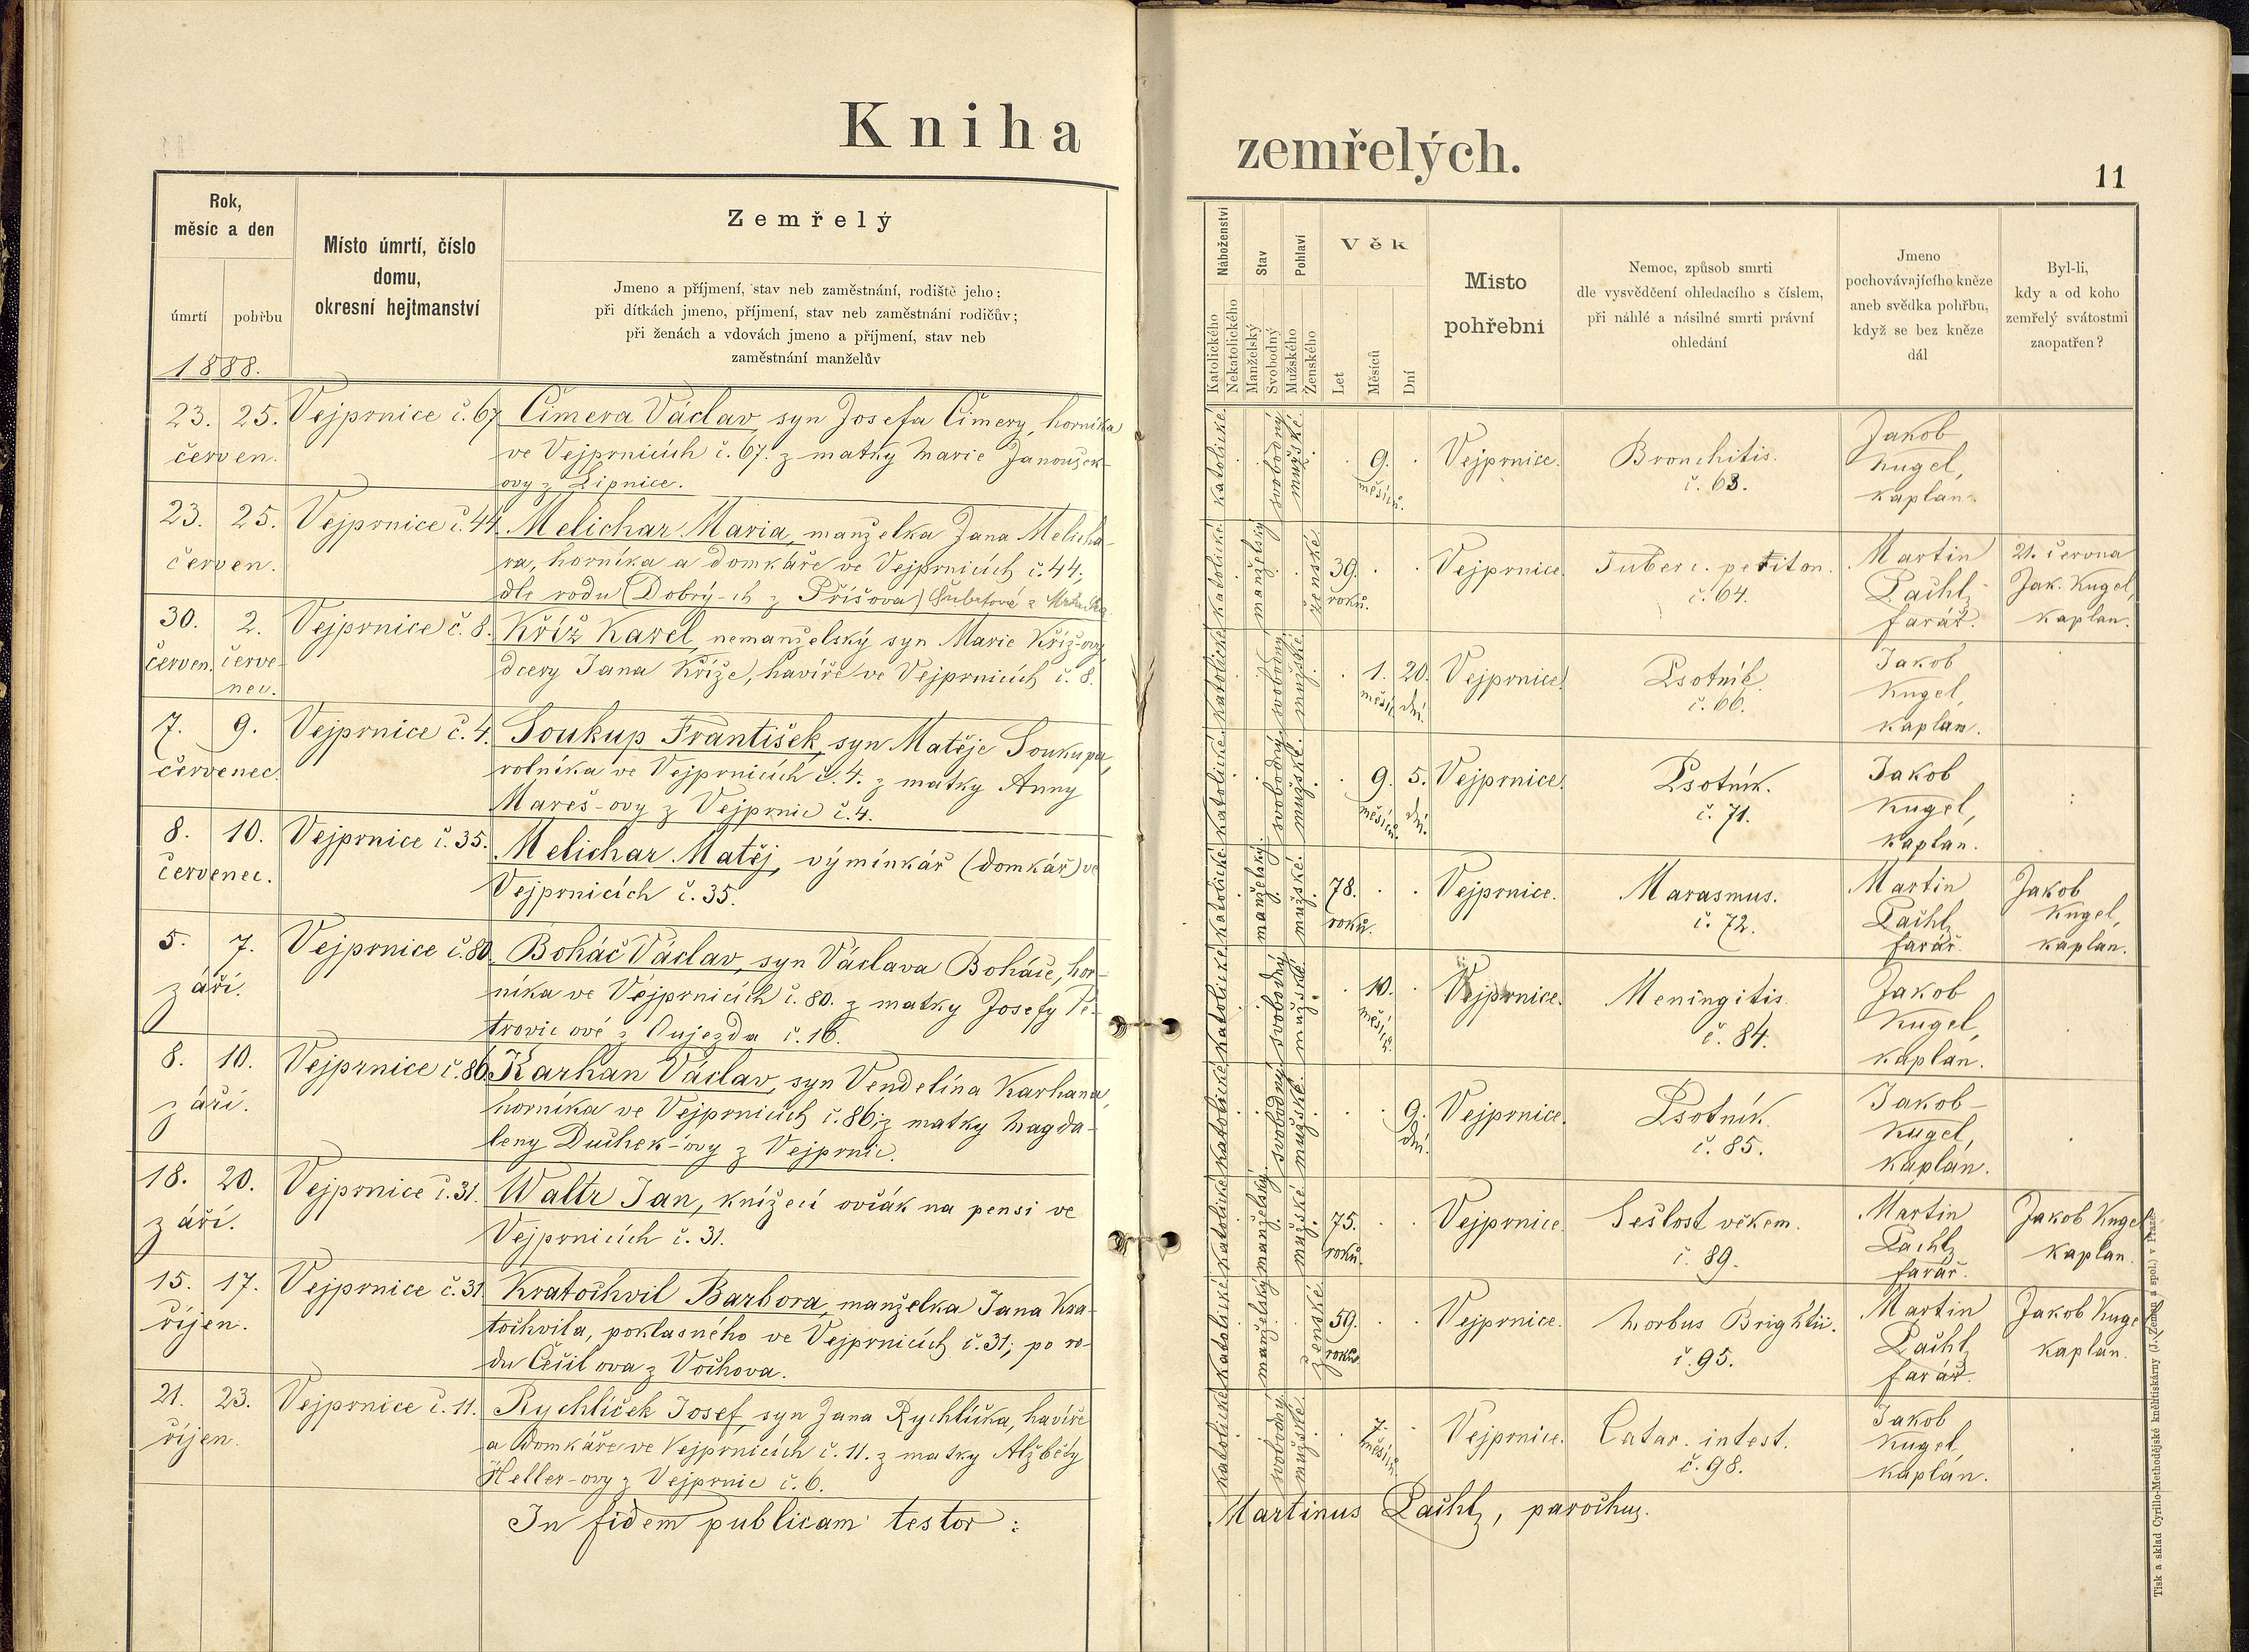 Kniha
zemřelých.
11
Rok,
měsíc a den
úmrtí
pohřbu
Místo úmrtí, číslo
domu,
okresní hejtmanství
Zemřelý
Jmeno a příjmení, stav neb zaměstnání, rodiště jeho;
při dítkách jmeno, příjmení, stav neb zaměstnání rodičův;
při ženách a vdovách jmeno a příjmení, stav neb
zaměstnání manželův
Náboženství
Katolického
Nekatolického
Stav
Manželský
Svobodný
Pohlaví
Mužského
Ženského
Věk
Let
Měsíců
Dní
Misto
pohřební
Nemoc, způsob smrti
dle vysvědčení ohledacího s číslem,
při náhlé a násilné smrti právní
ohledání
Jmeno
pochovávajícího kněze
aneb svědka pohřbu,
když se bez kněze
dál
Byl-li,
kdy a od koho
zemřelý svátostmi
zaopatřen?
1888.
23. 25. Vejprnice č. 67 Čimera Václav, syn Josefa Čimery, horníka
červen. ve Vejprnicích č. 67. z matky Marie Janoušek-
ovy z Lipnice.
katolické svobodný mužské. 9. měsíců. Vejprnice. Bronchitis. č. 63.
Jakob
Kugel,
kaplan.
23. 25. Vejprnice č. 44. Melichar Maria, manželka Jana Melicha-
červen. ra, horníka a domkáře ve Vejprnicích č. 44;
dle rodu (Dobrý-ch z Příšova)
katolické manželský ženské. 39. roků. Vejprnice. Tuberc. periton. č. 64.
Martin
Pachl,
farář.
21. června
Jak. Kugel,
kaplan.
30. 2. Vejprnice č. 8. Kříž Karel, nemanželský syn Marie Kříž-ovy
červen. červe- dcery Jana Kříže, havíře ve Vejprnicích č. 8.
nec.
katolické svobodný mužské 1. měsíc 20. dní. Vejprnice. Psotník. č. 66.
Jakob
Kugel,
kaplán.
7. 9. Vejprnice č. 4. Soukup František, syn Matěje Soukupa,
červenec. rolníka ve Vejprnicích č. 4. z matky Anny
Mareš-ovy z Vejprnic č. 4.
katolické svobodný mužské. 9. měsíců. 5. dní. Vejprnice. Psotník. č. 71.
Jakob
Kugel,
kaplan.
8. 10. Vejprnice č. 35. Melichar Matěj, výminkář (domkář) ve
červenec. Vejprnicích č. 35.
katolické manželský. mužské. 78. roků. Vejprnice. Marasmus. č. 72.
Martin
Pachl,
farář.
Jakob
Kugel,
kaplán.
5. 7. Vejprnice č. 80. Boháč Václav, syn Václava Boháče, hor-
září. níka ve Vejprnicích č. 80. z matky Josefy Pe-
trovic ové z Oujezda č. 16.
katolické svobodný mužské 10. měsíců. Vejprnice. Meningitis. č. 84.
Jakob
Kugel,
kaplan.
8. 10. Vejprnice č. 86. Karhan Václav, syn Vendelína Karhana,
září. horníka ve Vejprnicích č. 86; z matky Magda-
leny Duchek-ovy z Vejprnic.
katolické svobodný mužské. 9. dní. Vejprnice. Psotník. č. 85.
Jakob
Kugel,
kaplán.
18. 20. Vejprnice č. 31. Waltr Jan, knížecí ovčák na pensi ve
září. Vejprnicích č. 31.
katolické manželský. mužské 75. roků. Vejprnice. Sešlost věkem. č. 89.
Martin
Pachl,
farář.
Jakob Kugel
kaplan.
15. 17. Vejprnice č. 31. Kratochvil Barbora, manželka Jana Kra-
říjen. tochvila, poklasného ve Vejprnicích č. 31; po ro-
du Čečil ova z Vochova.
katolické manželský ženské. 59. roků. Vejprnice. Morbus Brightii. č. 95.
Martin
Pachl,
farář.
Jakob Kugel
kaplán.
21. 23. Vejprnice č. 11. Rychlíček Josef, syn Jana Rychlíčka, havíře
říjen. a domkáře ve Vejprnicích č. 11. z matky Alžběty
Heller-ovy z Vejprnic č. 6.
katolické svobodný mužské. 7. měsíců. Vejprnice. Catar. intest. č. 98.
Jakob
Kugel,
kaplán.
In fidem publicam testor: Martinus Pachl, parochus.
Tisk a sklad Cyrillo-Methodějské knihtiskárny (J. Zeman a spol.) v Praze.